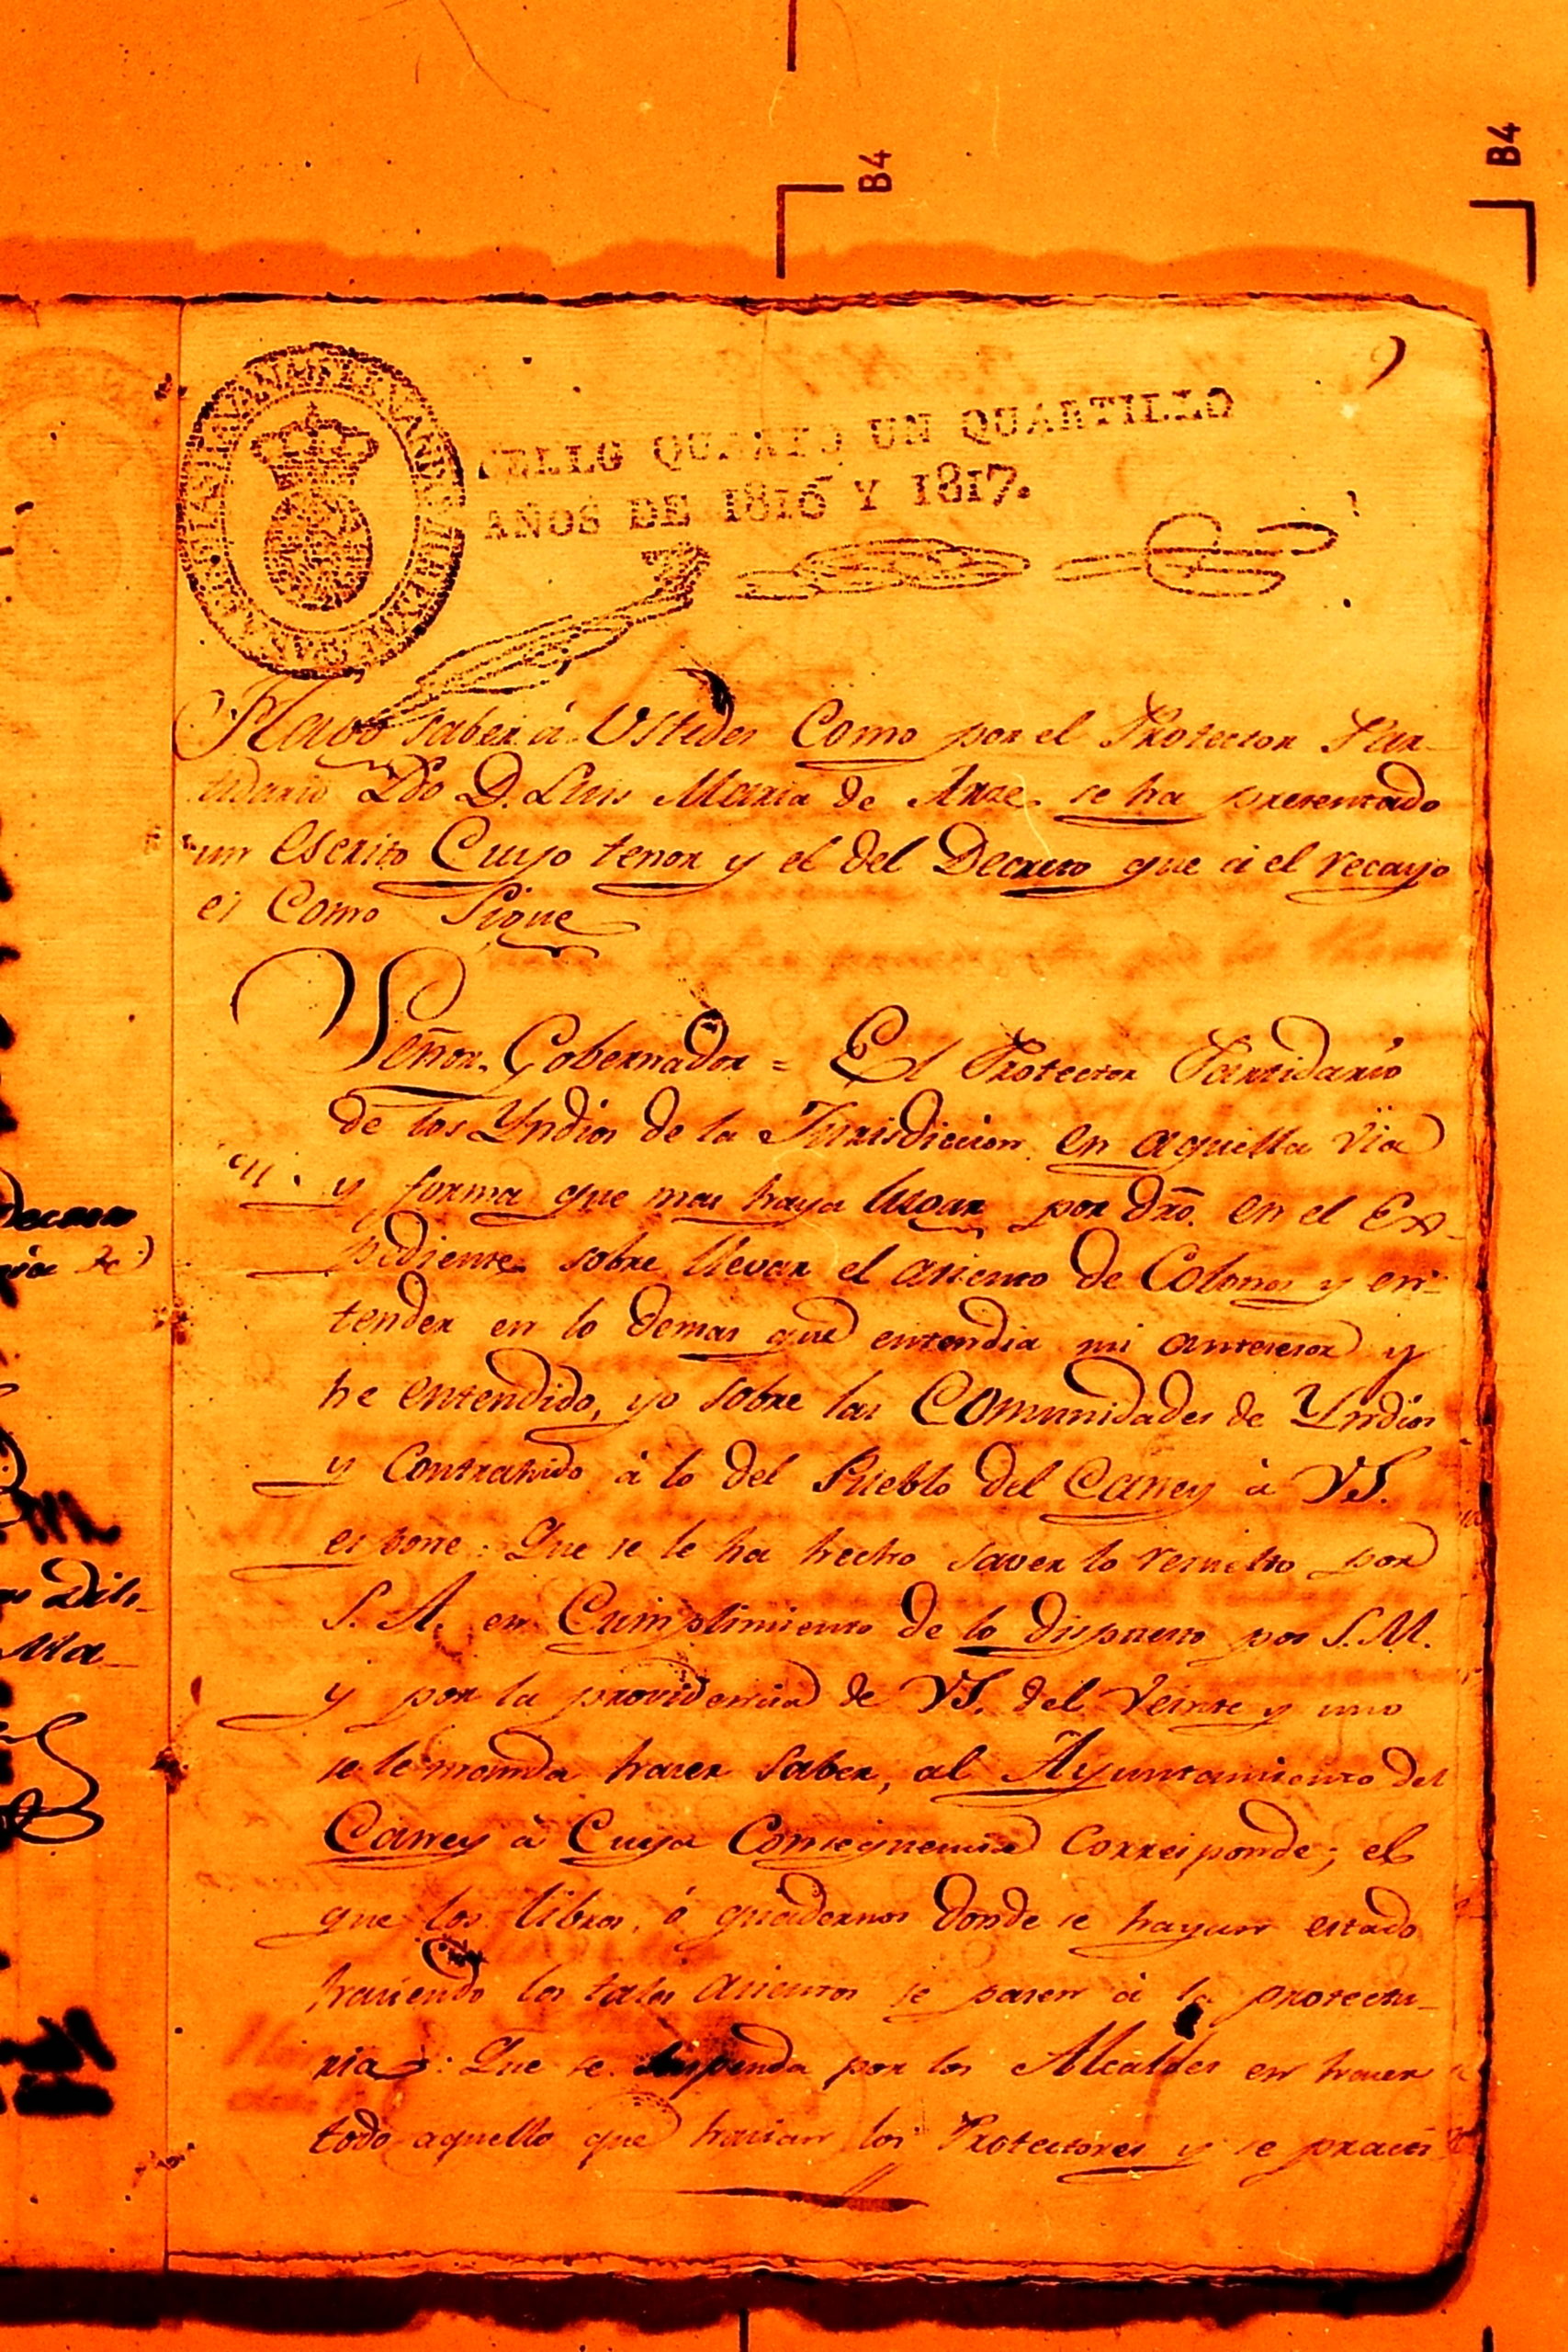 B4
B4
9
SELLO QUARTO UN QUARTILLO
AÑOS DE 1816 Y 1817.
Hago saber á Ustedes Como por el Protector Par-
tidario Ldo D. Luis Maria de Arze se ha presentado
un Escrito Cuyo tenor y el del Decreto que á el recayo
es Como Sigue
Señor Gobernador = El Protector Partidario
de los Yndios de la Jurisdiccion en aquella via
y forma que mas haya lugar por dro. en el Ex-
pediente sobre llevar el asiento de Colonos y en-
tender en lo demas que entendia mi antecesor y
he entendido, yo sobre las Comunidades de Yndios
y Contrahido á lo del Pueblo del Caney á VS.
espone: Que se le ha hecho saver lo resuelto por
S. A. en Cumplimiento de lo dispuesto por S. M.
y por la providencia de VS. del Veinte y uno
se le manda hacer saber, al Ayuntamiento del
Caney á Cuya Consequencia Corresponde; el
que los libros, ó quadernos donde se hayan estado
haciendo los tales asientos se pasen á la protectu-
ria: Que se suspenda por los Alcaldes en hacer
todo aquello que hacian los Protectores y se practi